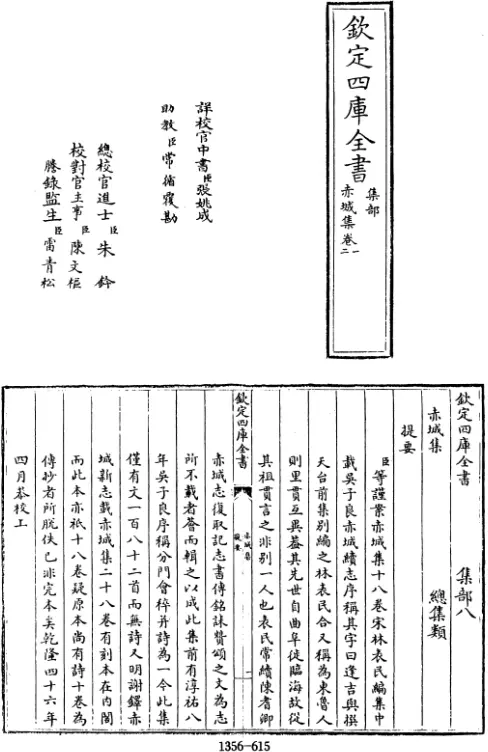 欽定四庫全書
集部
赤城集卷一二
詳校官中書臣張姚成
助教臣常循覆勘
總校官進士臣朱鈐
校對官主事臣陳文樞
謄錄監生臣雷青松
欽定四庫全書 集部八
赤城集 總集類
提要
臣等謹案赤城集十八卷宋林表民編集中
載吳子良赤城續志序稱其字曰逢吉與撰
天台前集別編之林表民合又稱為東魯人
則里貫互異蓋其先世自曲阜徙臨海故從
其祖貫言之非別一人也表民常續陳耆卿
欽定四庫全書 赤城集 提要 一
赤城志復取記志書傳銘誄贊頌之文為志
所不載者薈而輯之以成此集前有淳祐八
年吳子良序稱分門會稡并詩為一今此集
僅有文一百八十二首而無詩又明謝鐸赤
城新志載赤城集二十八卷有刻本在內閣
而此本亦祇十八卷疑原本尚有詩十卷為
傳抄者所脫佚已非完本矣乾隆四十六年
四月恭校上
1356-615